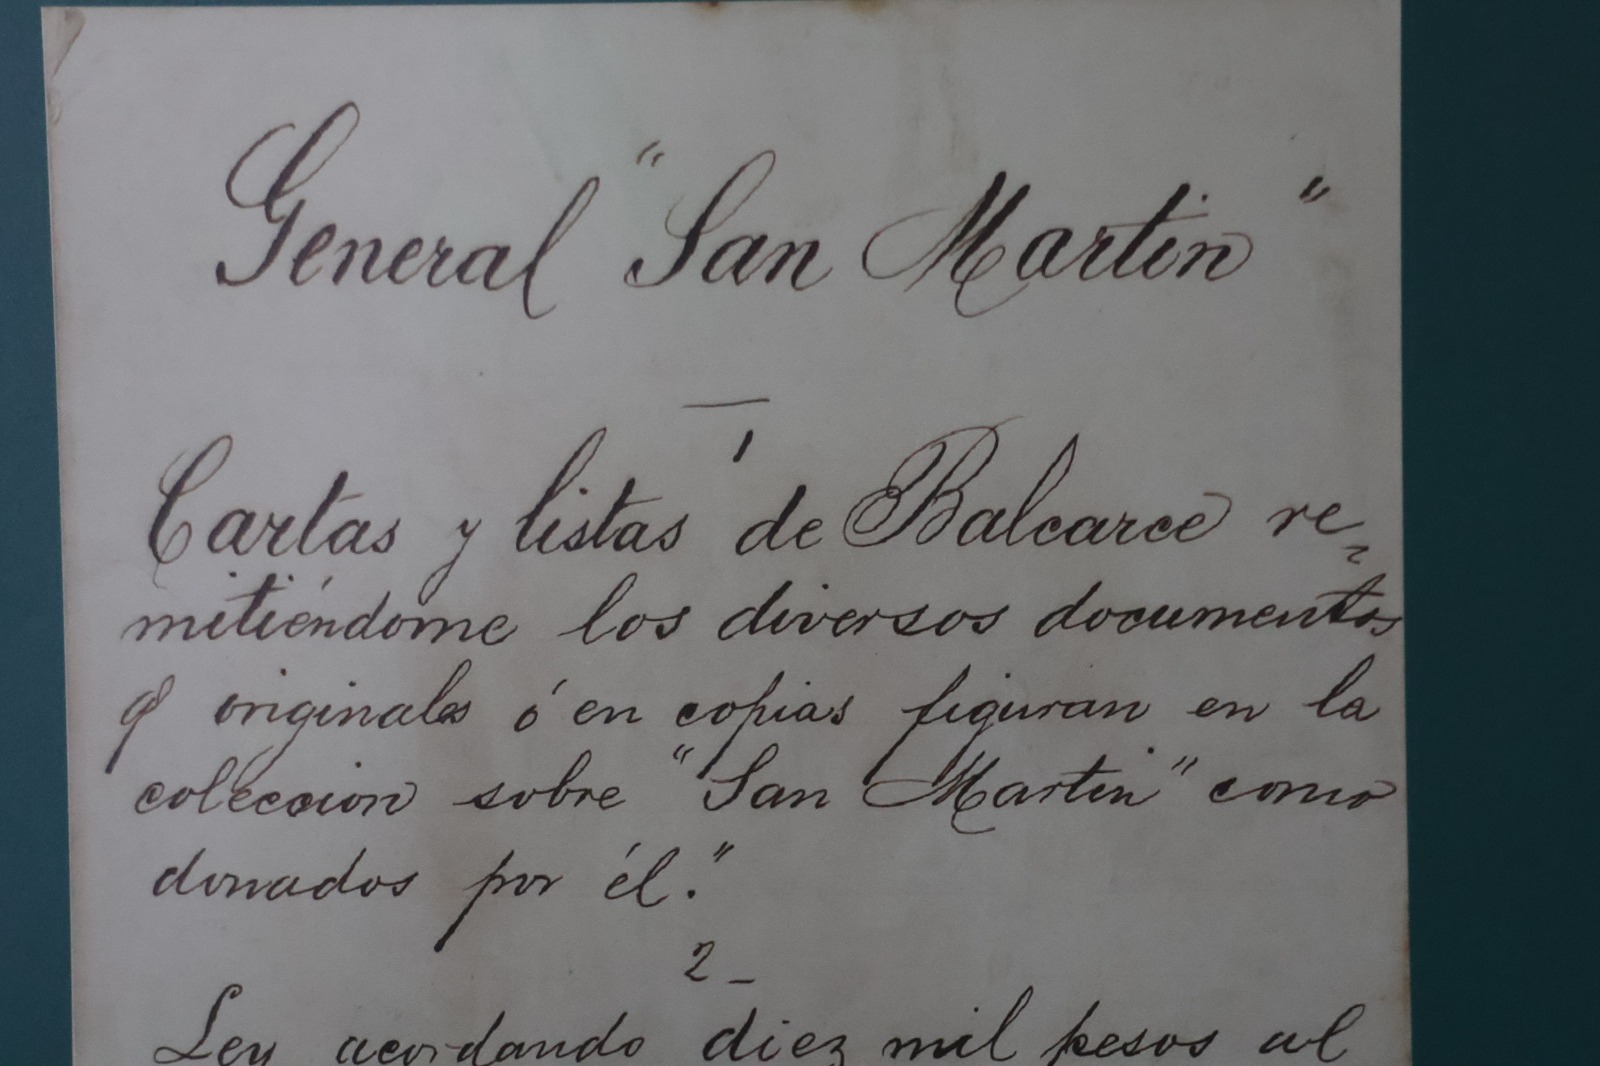 General "San Martin"
1
Cartas y listas de Balcarce re-
mitiéndome los diversos documentos
q' originales ó en copias figuran en la
coleccion sobre "San Martin" como
donados por él."
2-
Ley acordando diez mil pesos al